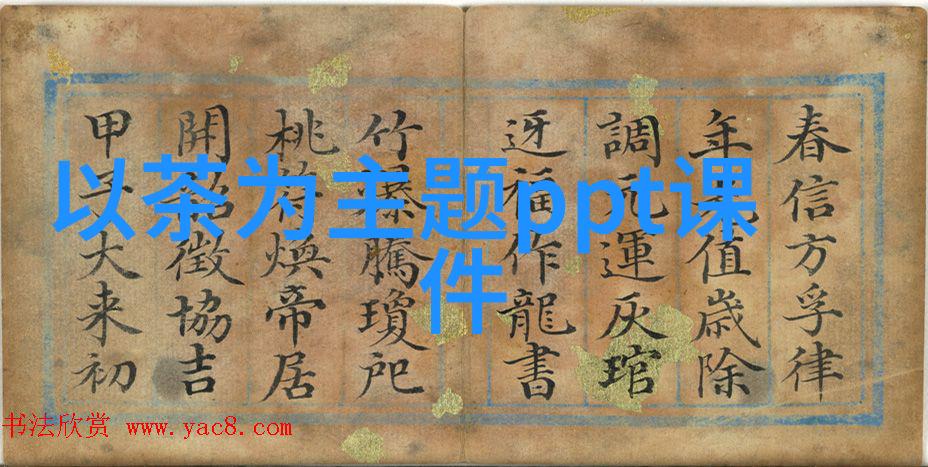 以茶为主题ppt课
件
春信方孚律
年值歲除
調元運灰琯
迓福作龍書
竹爆騰瓊戺
桃符煥帝居
開徵協吉
甲子大来初
书法欣赏 www.yac8.com